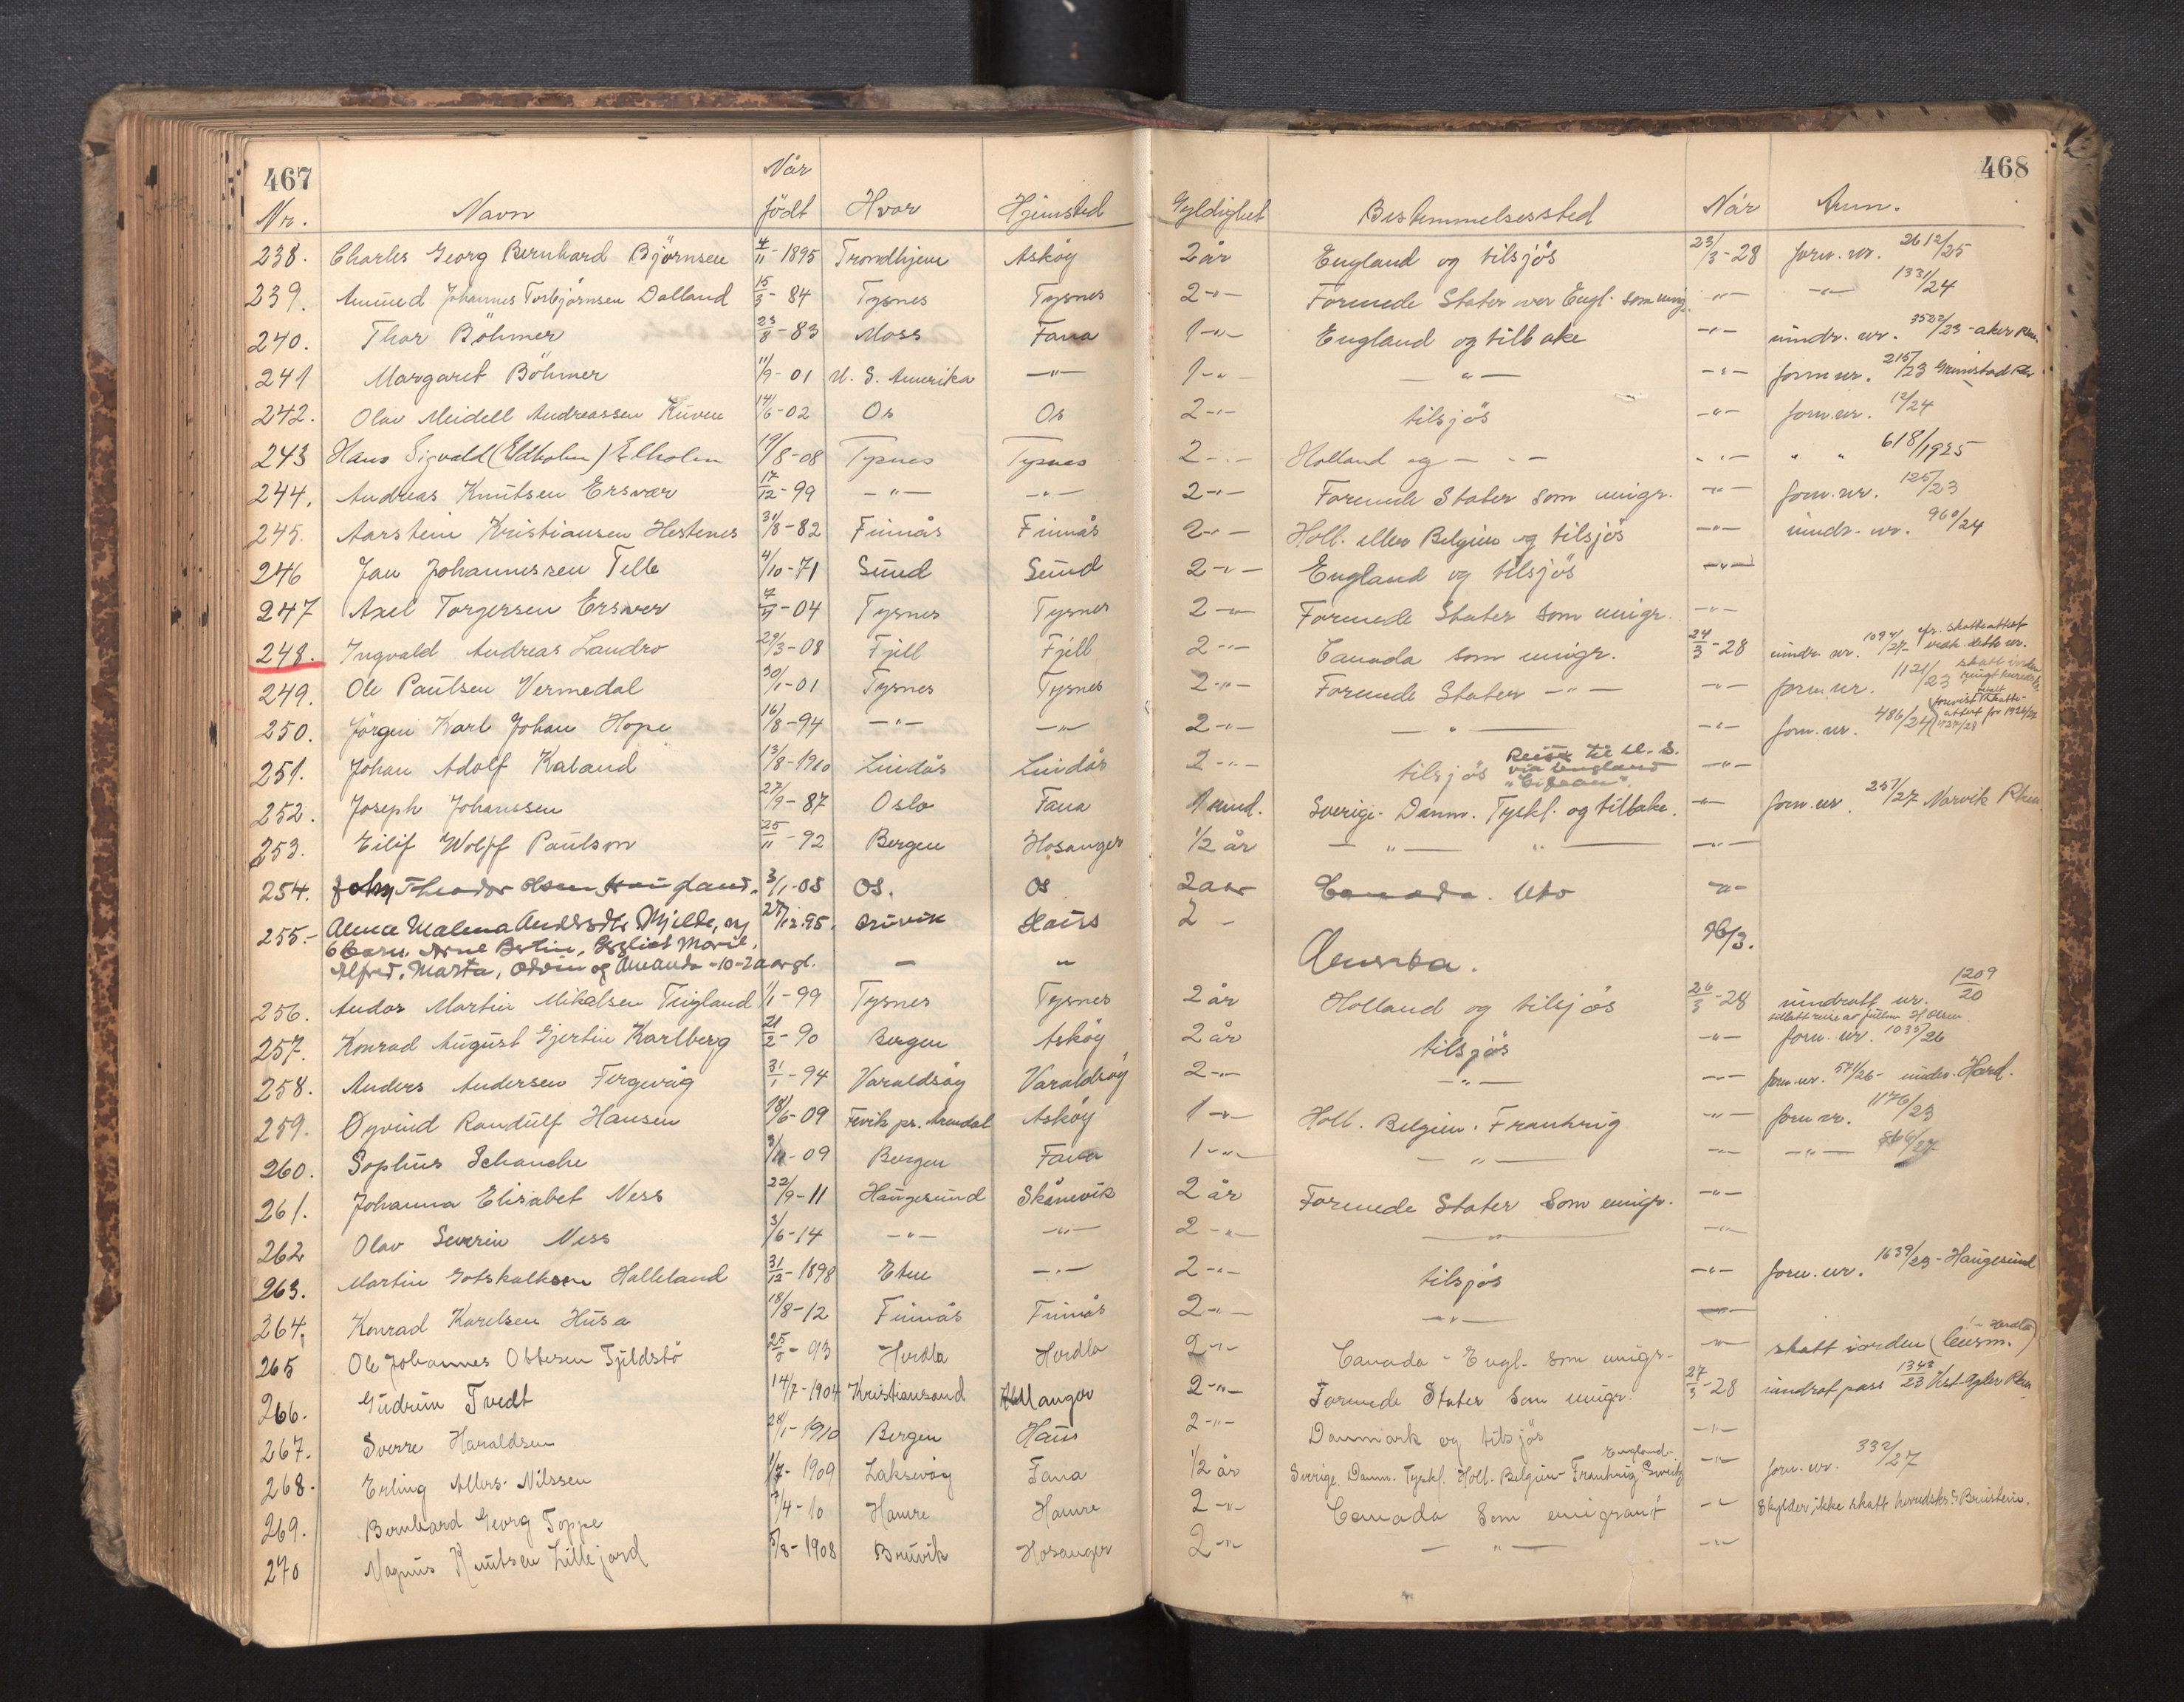 467 468
Når
Nr. Navn født Hvor Hjemsted Gyldighet Bestemmelsessted Når Anm.
238. Charles Georg Bernhard Björnsen 4/11-1895 Trondhjem Askøy 2 år England og tilsjös 23/3-28 forn. nr. 2612/25
239. Johannes Torbjørnsen Dalland 15/3-84 Tysnes Tysnes 2 -"- Forenede Stater over Engl. som emig. -"- -"- 1331/24
240. Thor Böhmer 23/8-83 Moss Fana 1 -"- England og tilbake -"- inndr. nr. 3522/23 - aker
241 Margaret Böhmer 11/9-01 U. S. Amerika -"- 1 -"- -"- -"- forn nr. 215/23 Grimstad
242. Olav Meidell Andreassen Kuven 14/6-02 Os Os 2 -"- tilsjös -"- forn. nr. 12/24
243 Hans Sigvald (Eldholm) Elholm 19/8-08 Tysnes Tysnes 2 -"- Holland og -"- -"- " " 618/1925
244. Andreas Knutsen Ersvær 17/12-99 -"- -"- 2 -"- Forenede Stater som emigr. -"- forn. nr. 125/23
245. Aarstein Kristiansen Hestenes 31/8-82 Finnås Finnås 2 -"- Holl. eller Belgien og tilsjös -"- inndr. nr. 960/24
246 Jan Johannessen Telle 4/10-71 Sund Sund 2 -"- England og tilsjös -"-
247 Axel Torgersen Ersvær -04 Tysnes Tysnes 2 -"- Forenede Stater som emigr. -"-
248. Ingvald Andreas Landro 29/3-08 Fjell Fjell 2 -"- Canada som emigr. 24/3-28 inndr. nr. 1094/27 cfr. skatteattest vedk. dette nr.
249. Ole Paulsen Vermedal 30/1-01 Tysnes Tysnes 2 -"- Forenede Stater -"- -"- forn. nr. 1121/23
250. Jörgen Karl Johan Hope 16/8-94 -"- -"- 2 -"- -"- -"- forn. nr. 486/24
251. Johan Adolf Kaland 13/8-1910 Lindås Lindås 2 -"- tilsjös Reise til U. S. via England -"-
252. Joseph Johanssen 27/9-87 Oslo Fana 1 mnd. Sverige - Danm. Tyskl. og tilbake. -"- forn. nr. 257/27 Narvik
253. Eilif Wolff Paulson 25/11-92 Bergen Hosanger 1/2 år -"- " -"-
254. John Theodor Olsen 3/1-05 Os. Os 2 aar Canada. -"-
255.- Andersdtr Mjelde, og 12.95. Bruvik Haus 2 - Amerika. 26/3.
6 barn, Arne Bertin, Marie,
Alfred, Marta, Odvin og Amanda -10-2 aar gl. - "
256. Andor Martin Mikalsen Teigland 1/1-99 Tysnes Tysnes 2 år Holland og tilsjös 26/3-28 inndratt nr. 1209/20
257. Konrad August Gjertin Karlberg 21/2-90 Bergen Askøy 2 år tilsjös -"- forn. nr. 1035/26
258. Anders Andersen Fergevåg 31/1-94 Varaldsöy Varaldsöy 2 -"- -"- -"- forn. nr. 571/26 - Hord.
259. Øyvind Randulf Hansen 18/6-09 Fevik pr. Arendal Askøy 1 -"- Holl. Belgien. Frankrig -"- forn nr. 1176/23
260. Sophus Schanche -09 Bergen Fana 1 -"- -"- -"- -"-
261. Johanna Elisabet Ness 22/9-11 Haugesund Skånevik 2 år Forenede Stater som emigr. -"-
262 Olav Severin Ness 3/6-14 -"- -"- 2 -"- -"- -"-
263. Martin Gotskalksen Halleland 31/12-1898 Etne -"- 2 -"- tilsjös -"- forn. nr. 1639/23 - Haugesund
264. Konrad Karelsen Husa 18/8-12 Finnås Finnås 2 -"- -"- -"-
265 Ole Johannes Obbesen Tjeldstö -93 Herdla Herdla 2 -"- Canada - Engl. som emigr- -"- skatt i orden (lensm. i Herdla)
266. Gudrun Tvedt 14/7-1904 Kristiansand 2 -"- Forenede Stater som emigr. 27/3-28 inndrat pass 1343/23
267. Sverre Haraldsen 1-1910 Bergen Haus 2 -"- Danmark og tilsjös -"-
268. Erling Allers-Nilssen 1/7-1909 Laksevåg Fana 1/2 år Sverige. Danm. Tyskl. Holl. Belgien - Frankrig England. Sweitz -"- forn. nr. 332/27
269. Bernhard Georg Toppe 7/4-10 Hamre Hamre 2 -"- Canada som emigrant -"- Skylder ikke skatt herredsks. i Bruvik.
270 Magnus Knutsen Lillejord 5/8-1908 Bruvik Hosanger 2 -"- -"- -"-